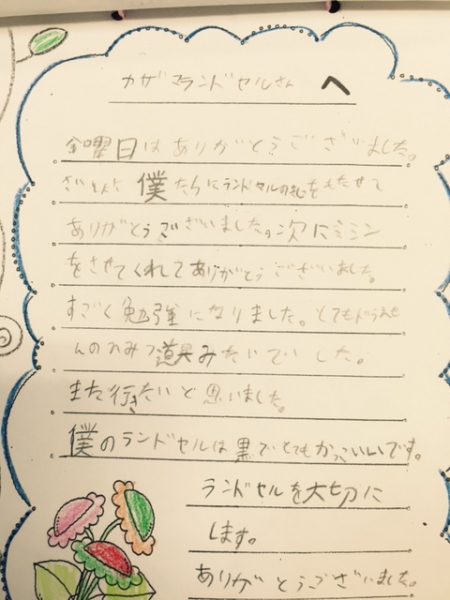 カザマランドセルさん へ
金曜日はありがとうございました。
さいしょに僕たちにランドセルの をもたせて
ありがとうございました。次にミミン
をさせてくれてありがとうございました。
すごく勉強になりました。とてもドラえも
んのひみつ道具みたいでした。
また行きたいと思いました。
僕のランドセルは黒でとてもかっこいいです。
ランドセルを大切に
します。
ありがとうございました。